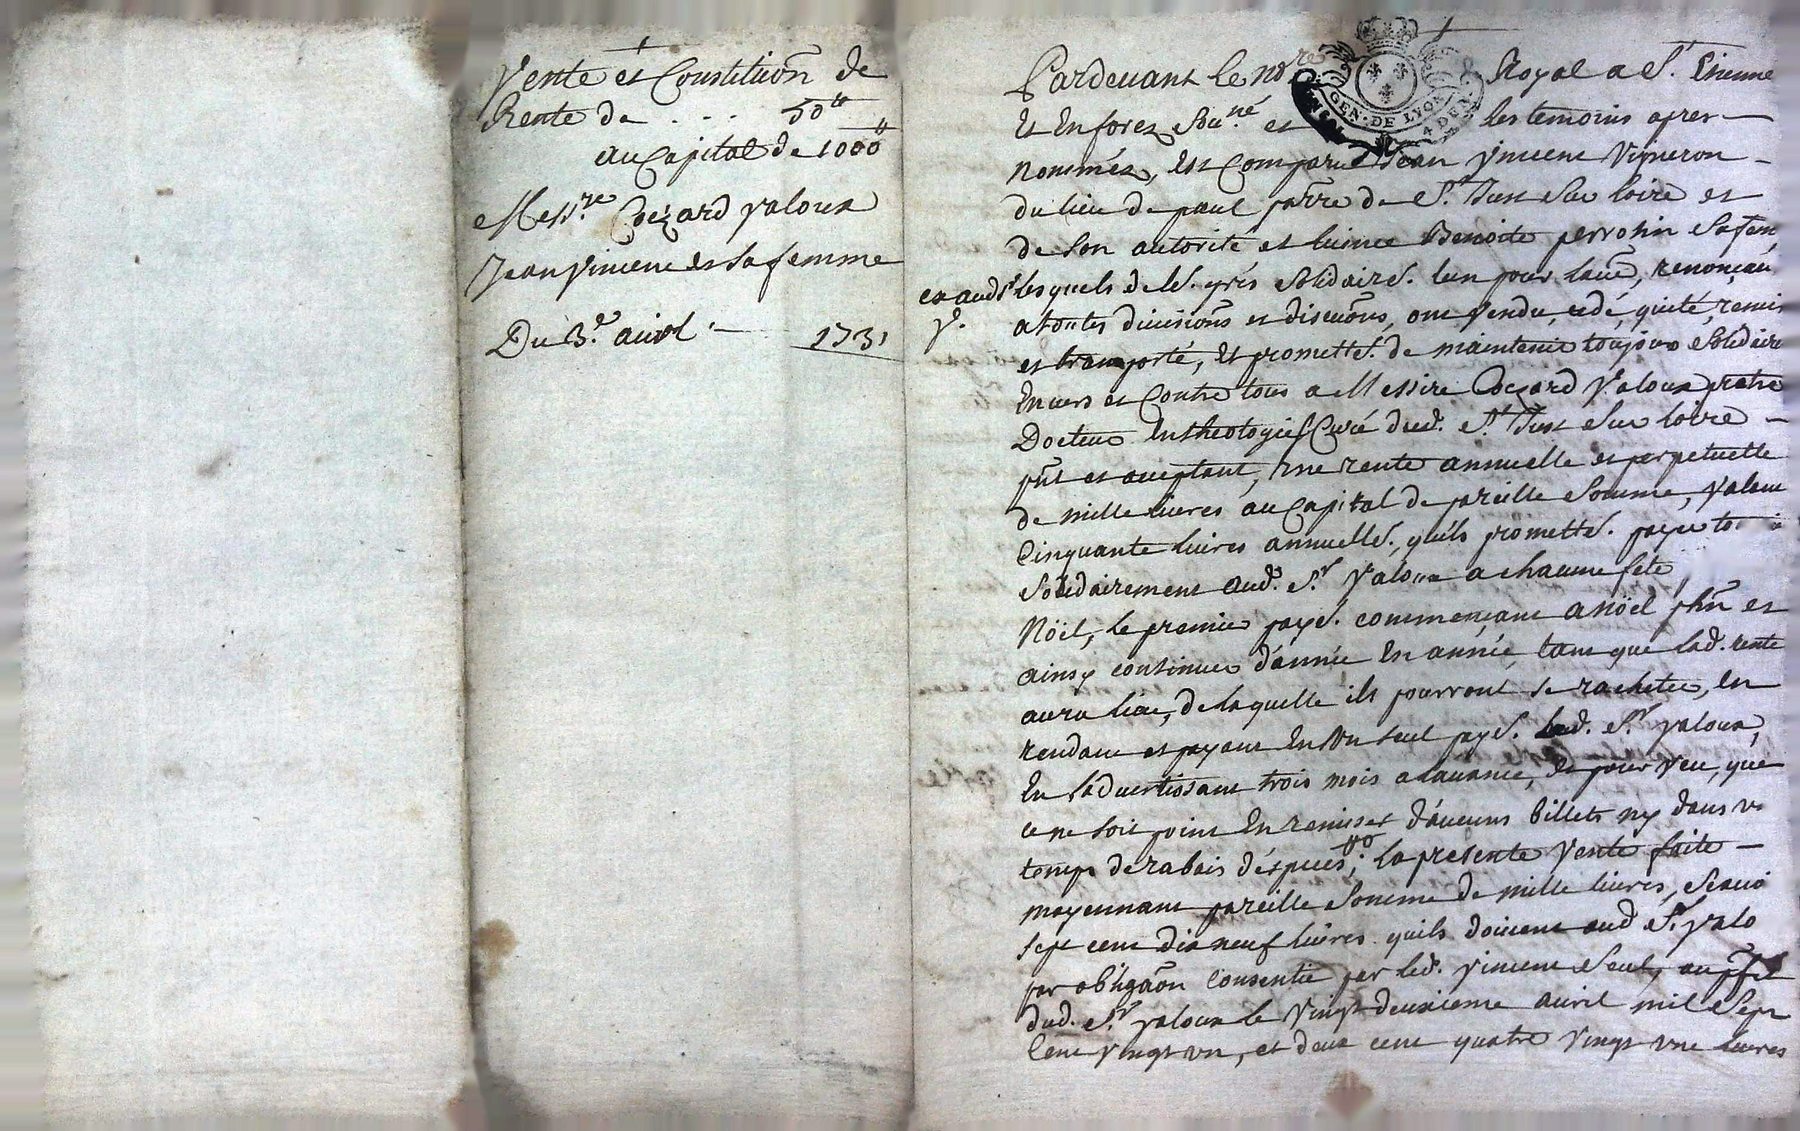 Vente et Constituon de
Rente de . . . 50lt
au Capital de 1000lt
Messire Cdezard valoux
Jean Vincent et sa femme
Du 3.e avril 1731
Pardevant le nore Royal a St. Etienne
Et En forez Sousné et les temoins apres
nommés, Est Comparu Jean Vincent Vigneron
du lieu de paul parre de St. Just Sur loire et
de Son autorité et licence Benoite perrotin Safem
lesquels de le. grés solidaire. lun pour lautre, renonçant
a toutes divisions et discuons, ont vendu, cedé, quité, remis
et transporté, Et promette. de maintenir toujours Solidaire
Envers et Contre tous a Messire Cdezard Valoux pretre
Docteur En theologie Curé dud. St. Just Sur loire
pnt et aceptant, une rente annuelle et perpetuelle
de mille livres au Capital de pareille Somme, valant
Cinquante livres annuelle. qu'ils promette. payer
Solidairement aud. Sr. Valoux a chacune fete
Nöel, le premier paye. commençant a Nöel phn et
ainsy continuer d'année En année, tant que lad. rente
aura lieu, de laquelle ils pourront se racheter, en
rendant et payant En Un seul paye. aud. Sr. valoux,
En Ladvertissant trois mois a lavance, et pour veu, que
ce ne soit point En remises d'aucuns billets ny dans un
temps de rabais d'éspeces; la presente Vente faite
moyennant pareille Somme de mille livres, Scavoir
sept cent dix neuf livres quils doivent aud. Sr. valo
par obligaon Consentie par led. Vincent Seul, au pffit
dud. Sr. valoux le Vingt deuxieme avril mil Sept
Cent Vingt un, et deux cent quatre Vingt une livres
GEN. DE LYON
4 DEN